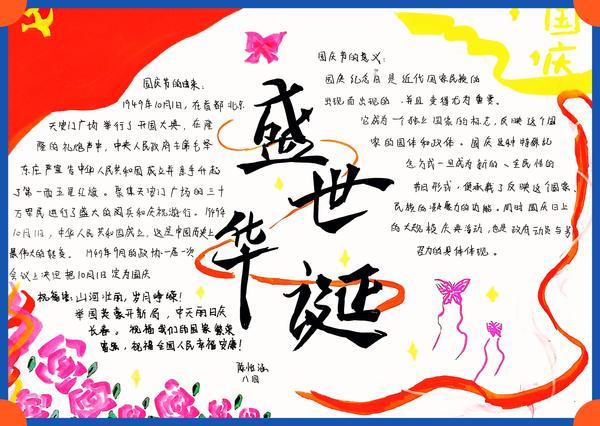 国庆
盛世华诞
国庆节的由来:
1949年10月1日,在首都北京
天安门广场举行了开国大典,在隆
隆的礼炮声中,中央人民政府主席毛泽
东庄严宣告中华人民共和国成立并亲手升起
了第一面五星红旗。聚集天安门广场的三十
万军民进行了盛大的阅兵和庆祝游行。1949年
10月1日,中华人民共和国成立,这是中国历史上
最伟大的转变。1949年9月的政协一届一次
会议上决定把10月1日定为国庆
祝福语:山河壮丽,岁月峥嵘!
举国英豪开新局,中天丽日庆
长春。祝福我们的国家繁荣
富强,祝福全国人民幸福安康!
八周
国庆节的意义:
国庆纪念日是近代国家民族的
出现而出现的,并且变得尤为重要。
它成为一个独立国家的标志,反映这个国
家的国体和政体。国庆这种特殊纪
念方式一旦成为新的、全民性的
节日形式,便承载了反映这个国家、
民族的凝聚力的功能。同时国庆日上
的大规模庆典活动,也是政府动员与号
召力的具体体现。